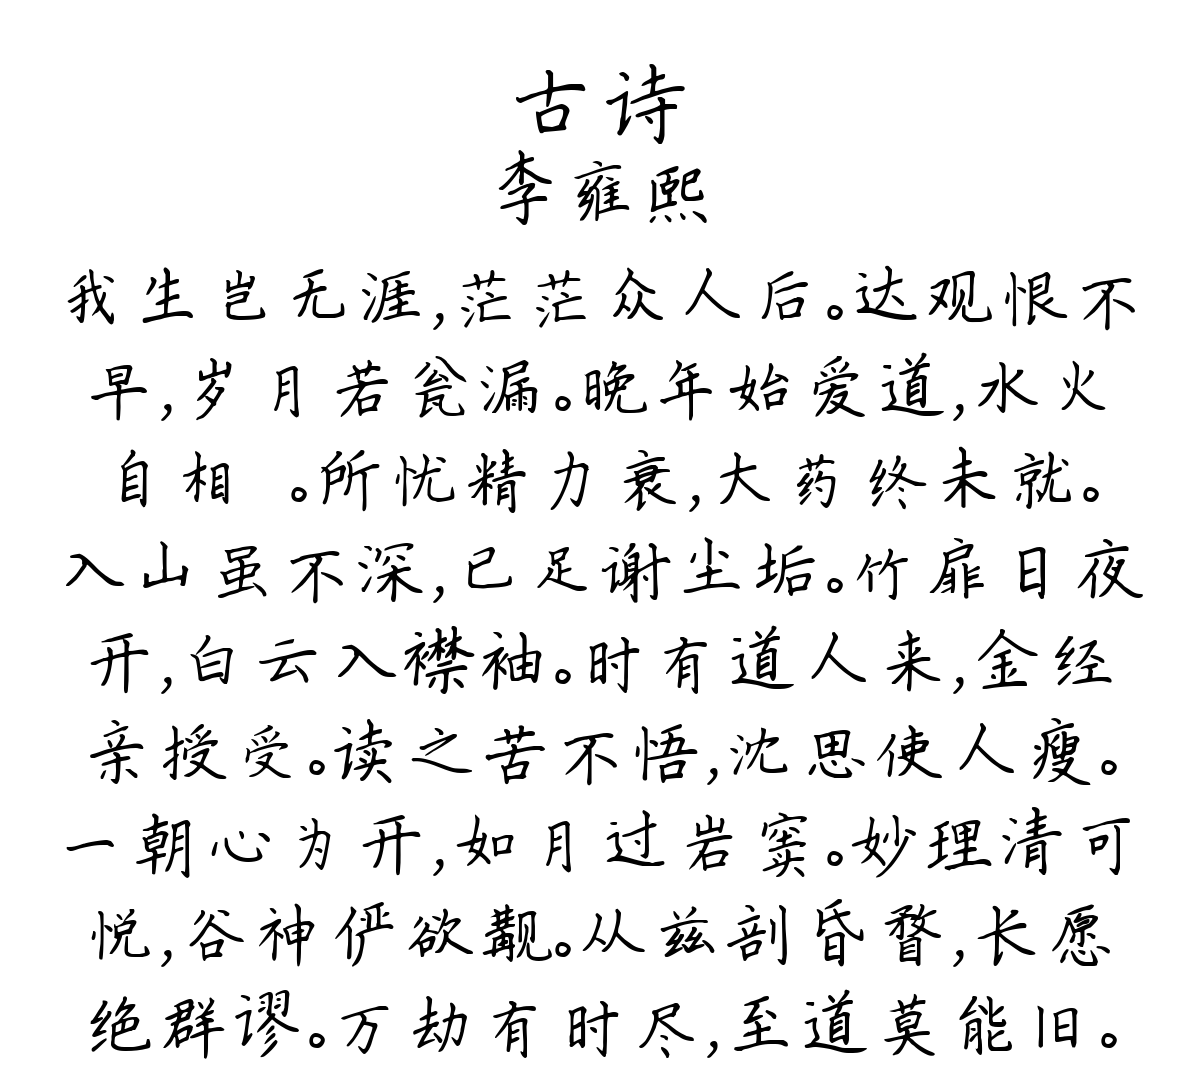 古诗
李雍熙
我生岂无涯,茫茫众人后。达观恨不
早,岁月若瓮漏。晚年始爱道,水火
自相 。所忧精力衰,大药终未就。
入山虽不深,已足谢尘垢。竹扉日夜
开,白云入襟袖。时有道人来,金经
亲授受。读之苦不悟,沈思使人瘦。
一朝心为开,如月过岩窦。妙理清可
悦,谷神俨欲觏。从兹剖昏瞀,长愿
绝群谬。万劫有时尽,至道莫能旧。